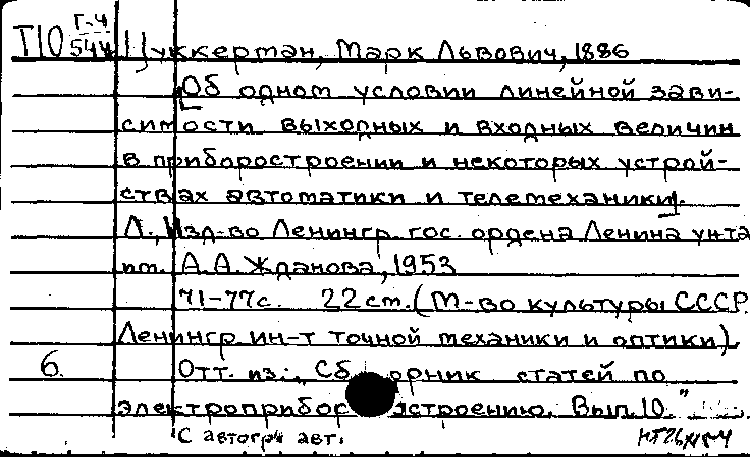 Т10 Г-4/544 Цуккерман, Марк Львович, 1886
[Об одном условии линейной зави-
симости выходных и входных величин
в приборостроении и некоторых устрой-
ствах автоматики и телемеханики].
Л., Изд-во Ленингр. гос. ордена Ленина ун-та
им. А.А. Жданова, 1953
71-77с. 22 ст. (М-во культуры СССР.
Ленингр ин-т точной механики и оптики).
6. Отт. из: „Сборник статей по
электроприборостроению. Вып. 10."
С автогр. авт.